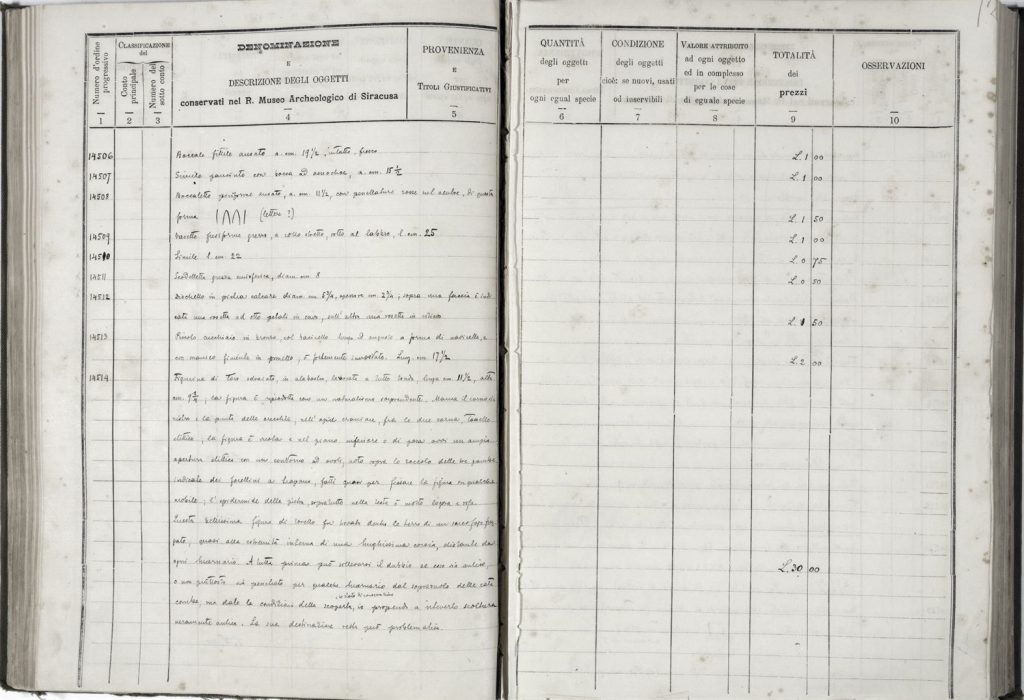 Numero d'ordine progressivo
CLASSIFICAZIONE
del
Conto principale
Numero del sotto conto
DENOMINAZIONE
E
DESCRIZIONE DEGLI OGGETTI
conservati nel R. Museo Archeologico di Siracusa
PROVENIENZA
E
TITOLI GIUSTIFICATIVI
QUANTITÀ
degli oggetti
per
ogni egual specie
CONDIZIONE
degli oggetti
cioè: se nuovi, usati
od inservibili
VALORE ATTRIBUITO
ad ogni oggetto
ed in complesso
per le cose
di eguale specie
TOTALITÀ
dei
prezzi
OSSERVAZIONI
1 2 3 4 5 6 7 8 9 10
14506 Boccale fittile ansato a. cm. 19 1/2, intatto, grezzo L. 1 00
14507 Simile panciuto con bocca ad oenochoe, a. cm. 15 1/2 L. 1 00
14508 Boccaletto piriforme ansato, a. cm. 11 1/2, con pennellature rosse nel di questa
forma (lettere ?) L. 1 50
14509 Vasetto fusiforme grezzo, a collo stretto, rotto al labbro, l. cm. 25 L. 1 00
14510 Simile l. cm. 22 L. 0 75
14511 Scodelletta grezza emisferica, diam. cm. 8 L. 0 50
14512 Dischetto in pietra calcare diam. cm. 2 3/4; sopra una faccia è
una rosetta ad otto petali in cavo, sull'altra una rosetta in rilievo L. 1 50
14513 Piccolo cucchiaio in bronzo, col a forma di navicella, e
con manico finiente in pometto; è fortemente incrostato. Lung. cm. 17 1/2 L. 2 00
14514 Figurina di Toro sdraiato, in alabastro, lavorata a tutto tondo, lunga cm. 11 1/2, alta
cm. 9 1/4; la figura è riprodotta con un naturalismo sorprendente. Manca il corno
e la punta delle orecchie, nell' fra le due corna
; la figura è vuota e nel piano inferiore o di posa avvi un'ampia
apertura ellittica con un contorno ad ovoli, sotto
dei forellini a trapano, fatti quasi per fissare la figura su qualche
mobile; l'epidermide della pietra, sopratutto nella testa è molto
Questa bellissima figura di torello fu trovata dentro le terre di un sarcofago
quasi alla estremità interna di una lunghissima corsia, distante da
ogni lucernario. A tutta prima può sollevarsi il dubbio se essa sia antica,
o non piuttosto sia penetrata per qualche lucernario dal soprasuolo delle cata
combe; ma date le condizioni della scoperta, lo stato di conservazione io propendo a ritenerla scoltura
veramente antica. La sua destinazione resta però problematica. L. 30 00